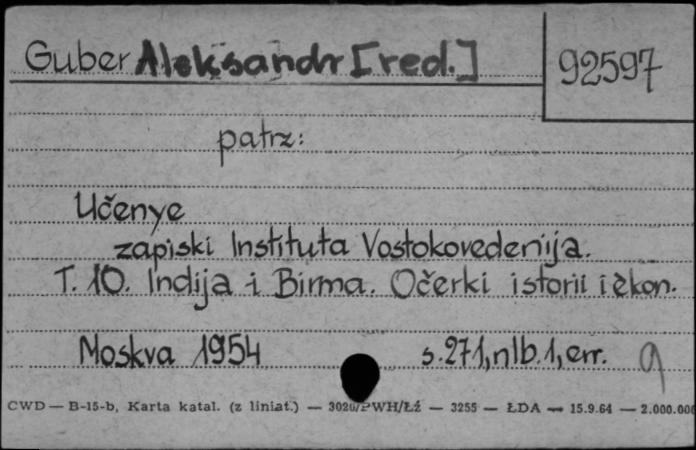 Guber Aleksandr [red.]
92597
patrz:
Učenye
zapiski Instituta Vostokovedenija.
T. 10. Indija i Birma. Očerki istorii i èkon.
Moskva 1954 s. 271, nlb. 1, err.
CWD — B-15-b, Karta katal. (z liniat.) — 3020/PWH/Łź — 3255 — ŁDA — 15.9.64 — 2.000.000